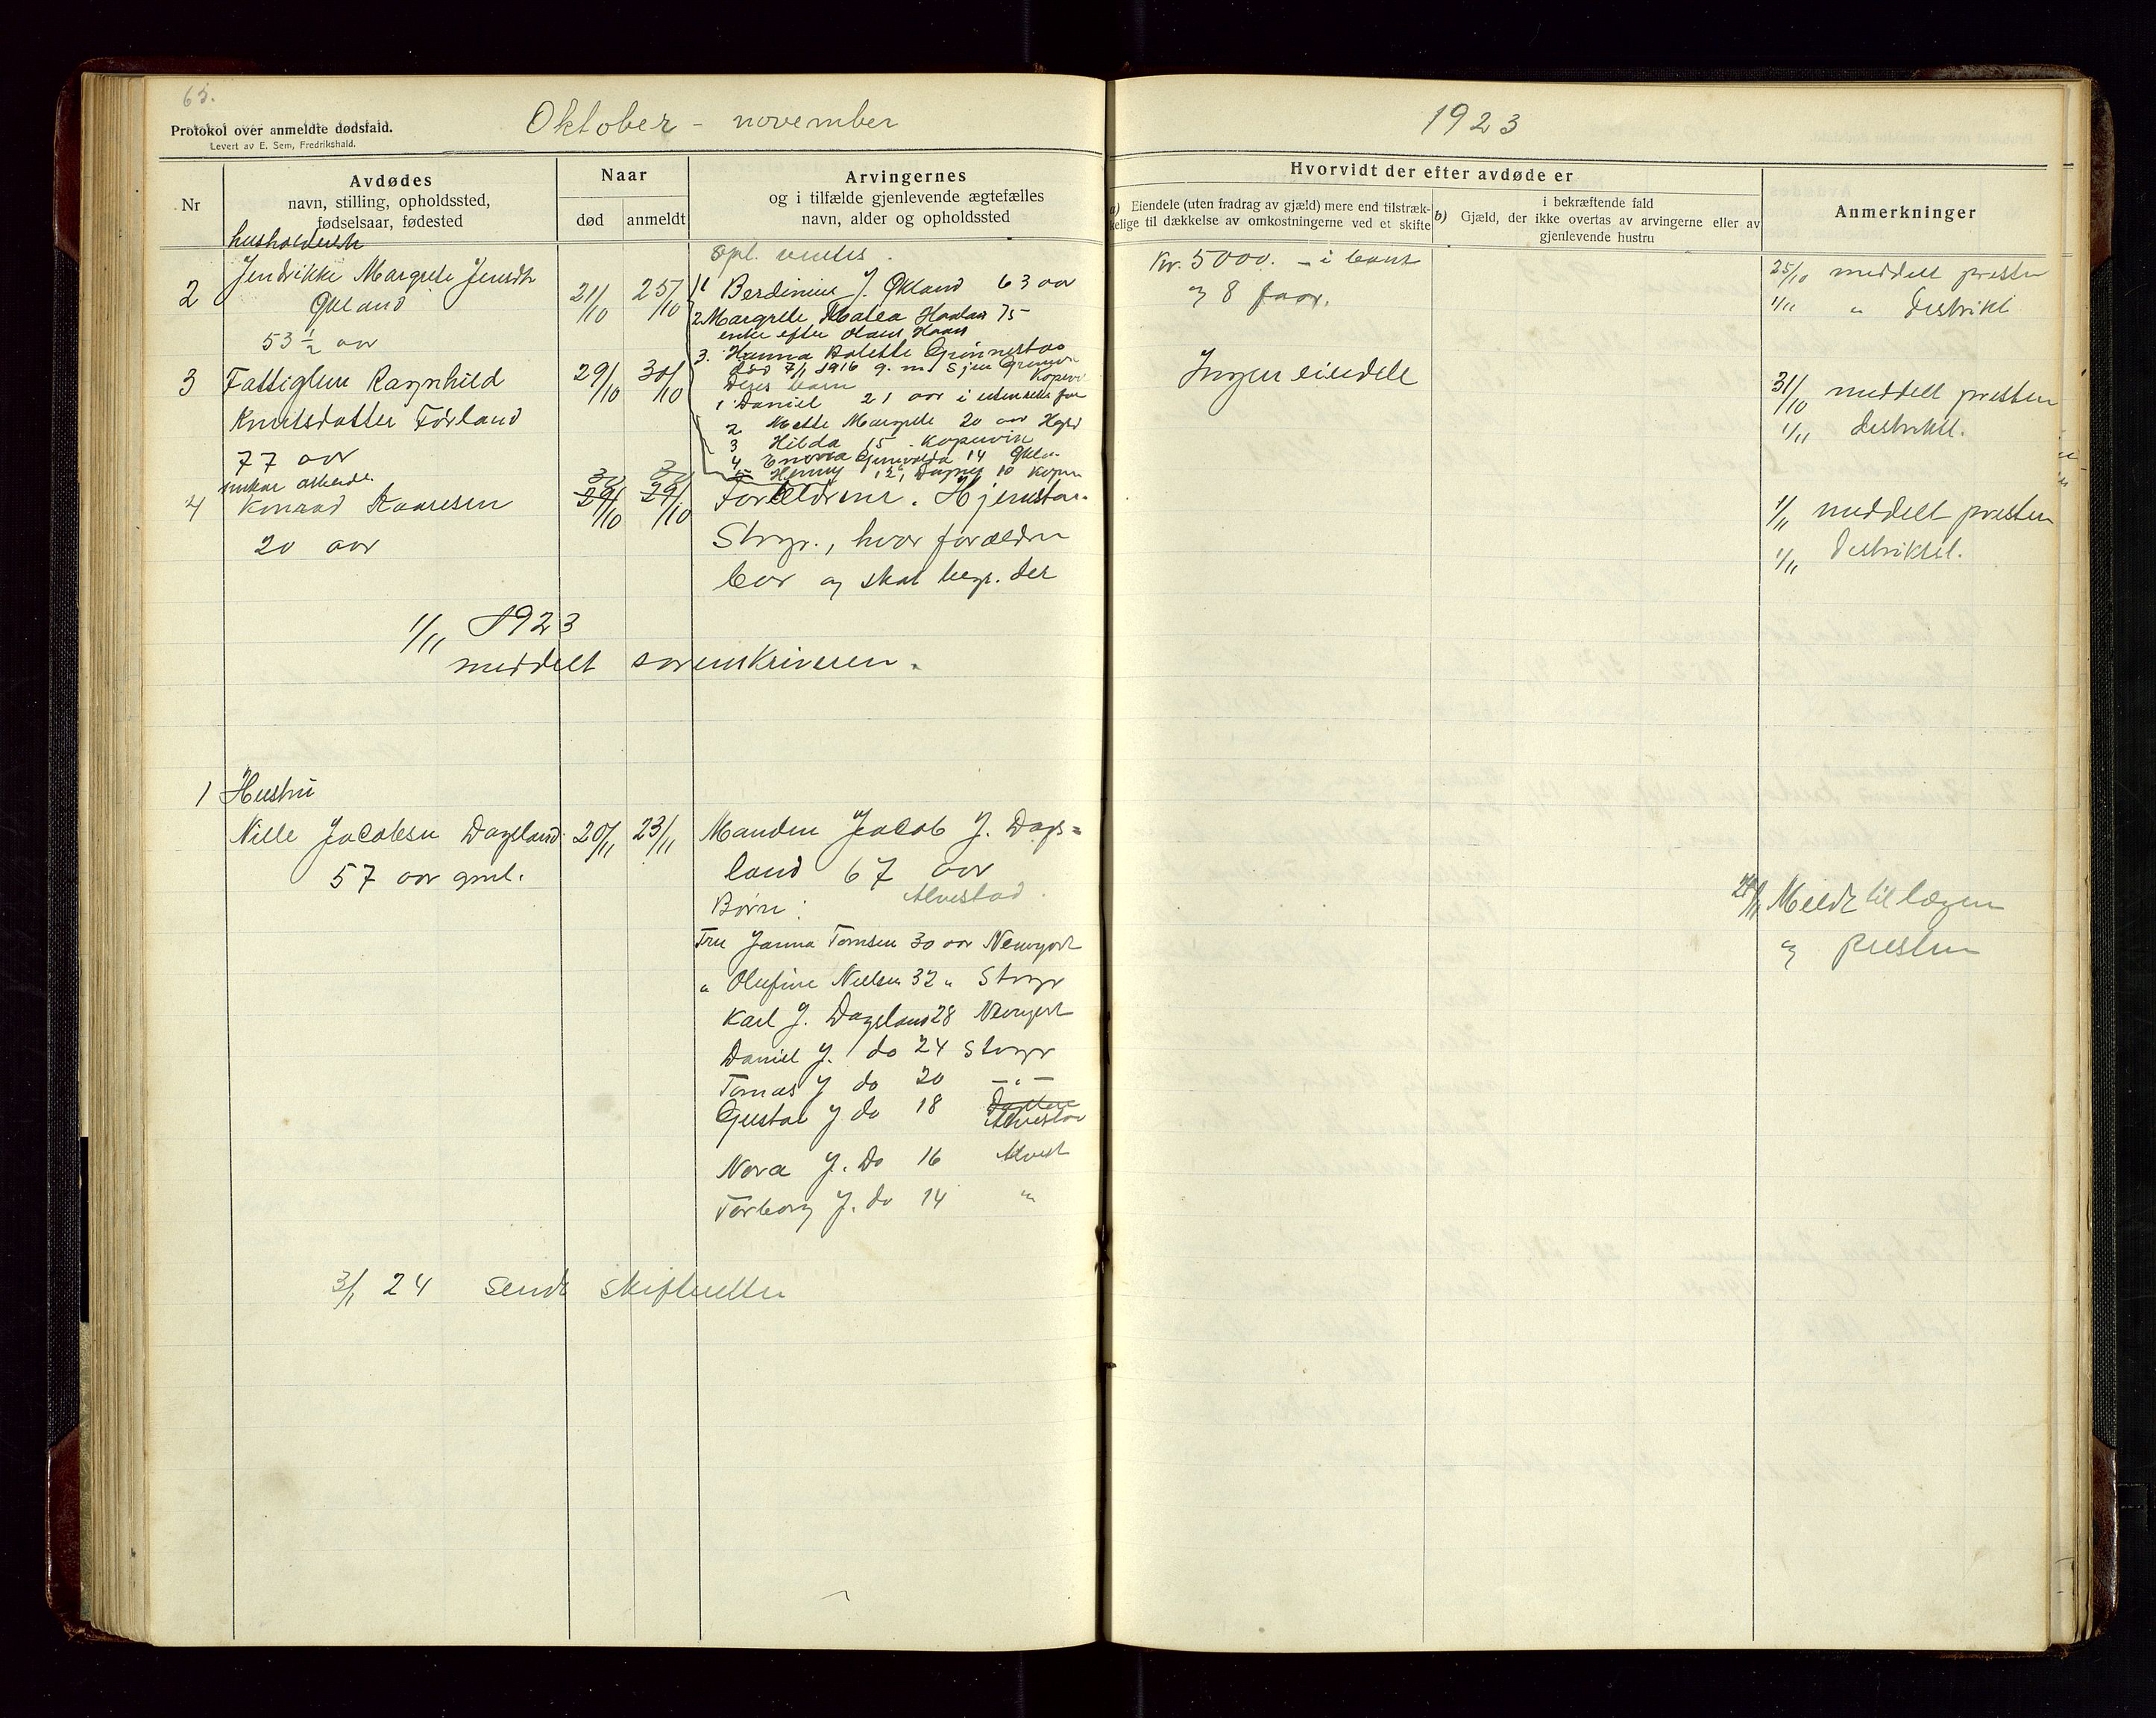 65.
Protokol over anmeldte dødsfald.
Levert av E. Sem, Fredrikshald.
Oktober - november
1923
Nr
Avdødes
navn, stilling, opholdssted,
fødselsaar, fødested
Naar
død
anmeldt
Arvingernes
og i tilfælde gjenlevende ægtefælles
navn, alder og opholdssted
Hvorvidt der efter avdøde er
a) Eiendele (uten fradrag av gjæld) mere end tilstræk-
kelige til dækkelse av omkostningerne ved et skifte
i bekræftende fald
b) Gjæld, der ikke overtas av arvingerne eller av
gjenlevende hustru
Anmerkninger
2
Jendrikke Margrete
Økland
53 ½ aar
21/10
25/10
Opl. ventes.
1 Berdinius J. Økland 63 aar
2 Margrete Malea 75
enke efter
3. Hanna Bolette Grønnestad
død 7/1 1916 g. m.
Deres barn
1 Daniel 21 aar i
2 Mette Margrete 20 aar
3 Hilda 15 Kopervik
4 14
5 Henny 12, Dagny 10
Kr. 5000. - i bank
og 8 faar.
25/10 meddelt presten
1/11 " Distrikt
3
Fattiglem Ragnhild
Knutsdatter Førland
77 aar
29/10
30/10
Ingen eiendele
31/10 meddelt presten
1/11 distriktl.
4
Konrad Kaaresen
20 aar
30
29/10
30
29/10
Forældrene. Hjemsta.
Stvgr., hvor forældre
bor og skal begr. der
1/11 meddelt presten
1/11 Distriktsl.
1/11 1923
meddelt sorenskriveren.
1 Hustru
Nille Jacobsen Dagsland
57 aar gml.
20/11
23/11
Manden Jacob J. Dags=
land 67 aar
Børn: Alvestad.
Fru Janna Tomsen 30 aar Newyork
" Olufine Nielsen 32 " Stvgr
Karl J. Dagsland 28 Newyork
Daniel J. do 24 Stvgr
Tomas J do 20 - " -
Gustav J do 18 Alvestad
Nora J. Do 16 Alvest
Torborg J. do 14 "
24/11 Meldt til lægen
og presten
3/1 24 sendt skifteretten